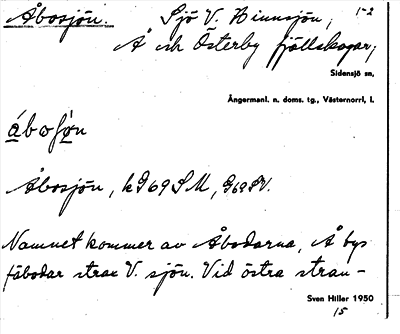 Åbosjön. Sjö V. Hinnsjön, 1-2
Å och Österby fjällskogar,
Sidensjö sn,
Ångermanl. n. doms. tg., Västernorrl, l.
Åbosjön, k
Namnet kommer av Åbodarna, Å bys
fäbodar strax V. sjön. Vid östra stran-
Sven Hiller 1950
15